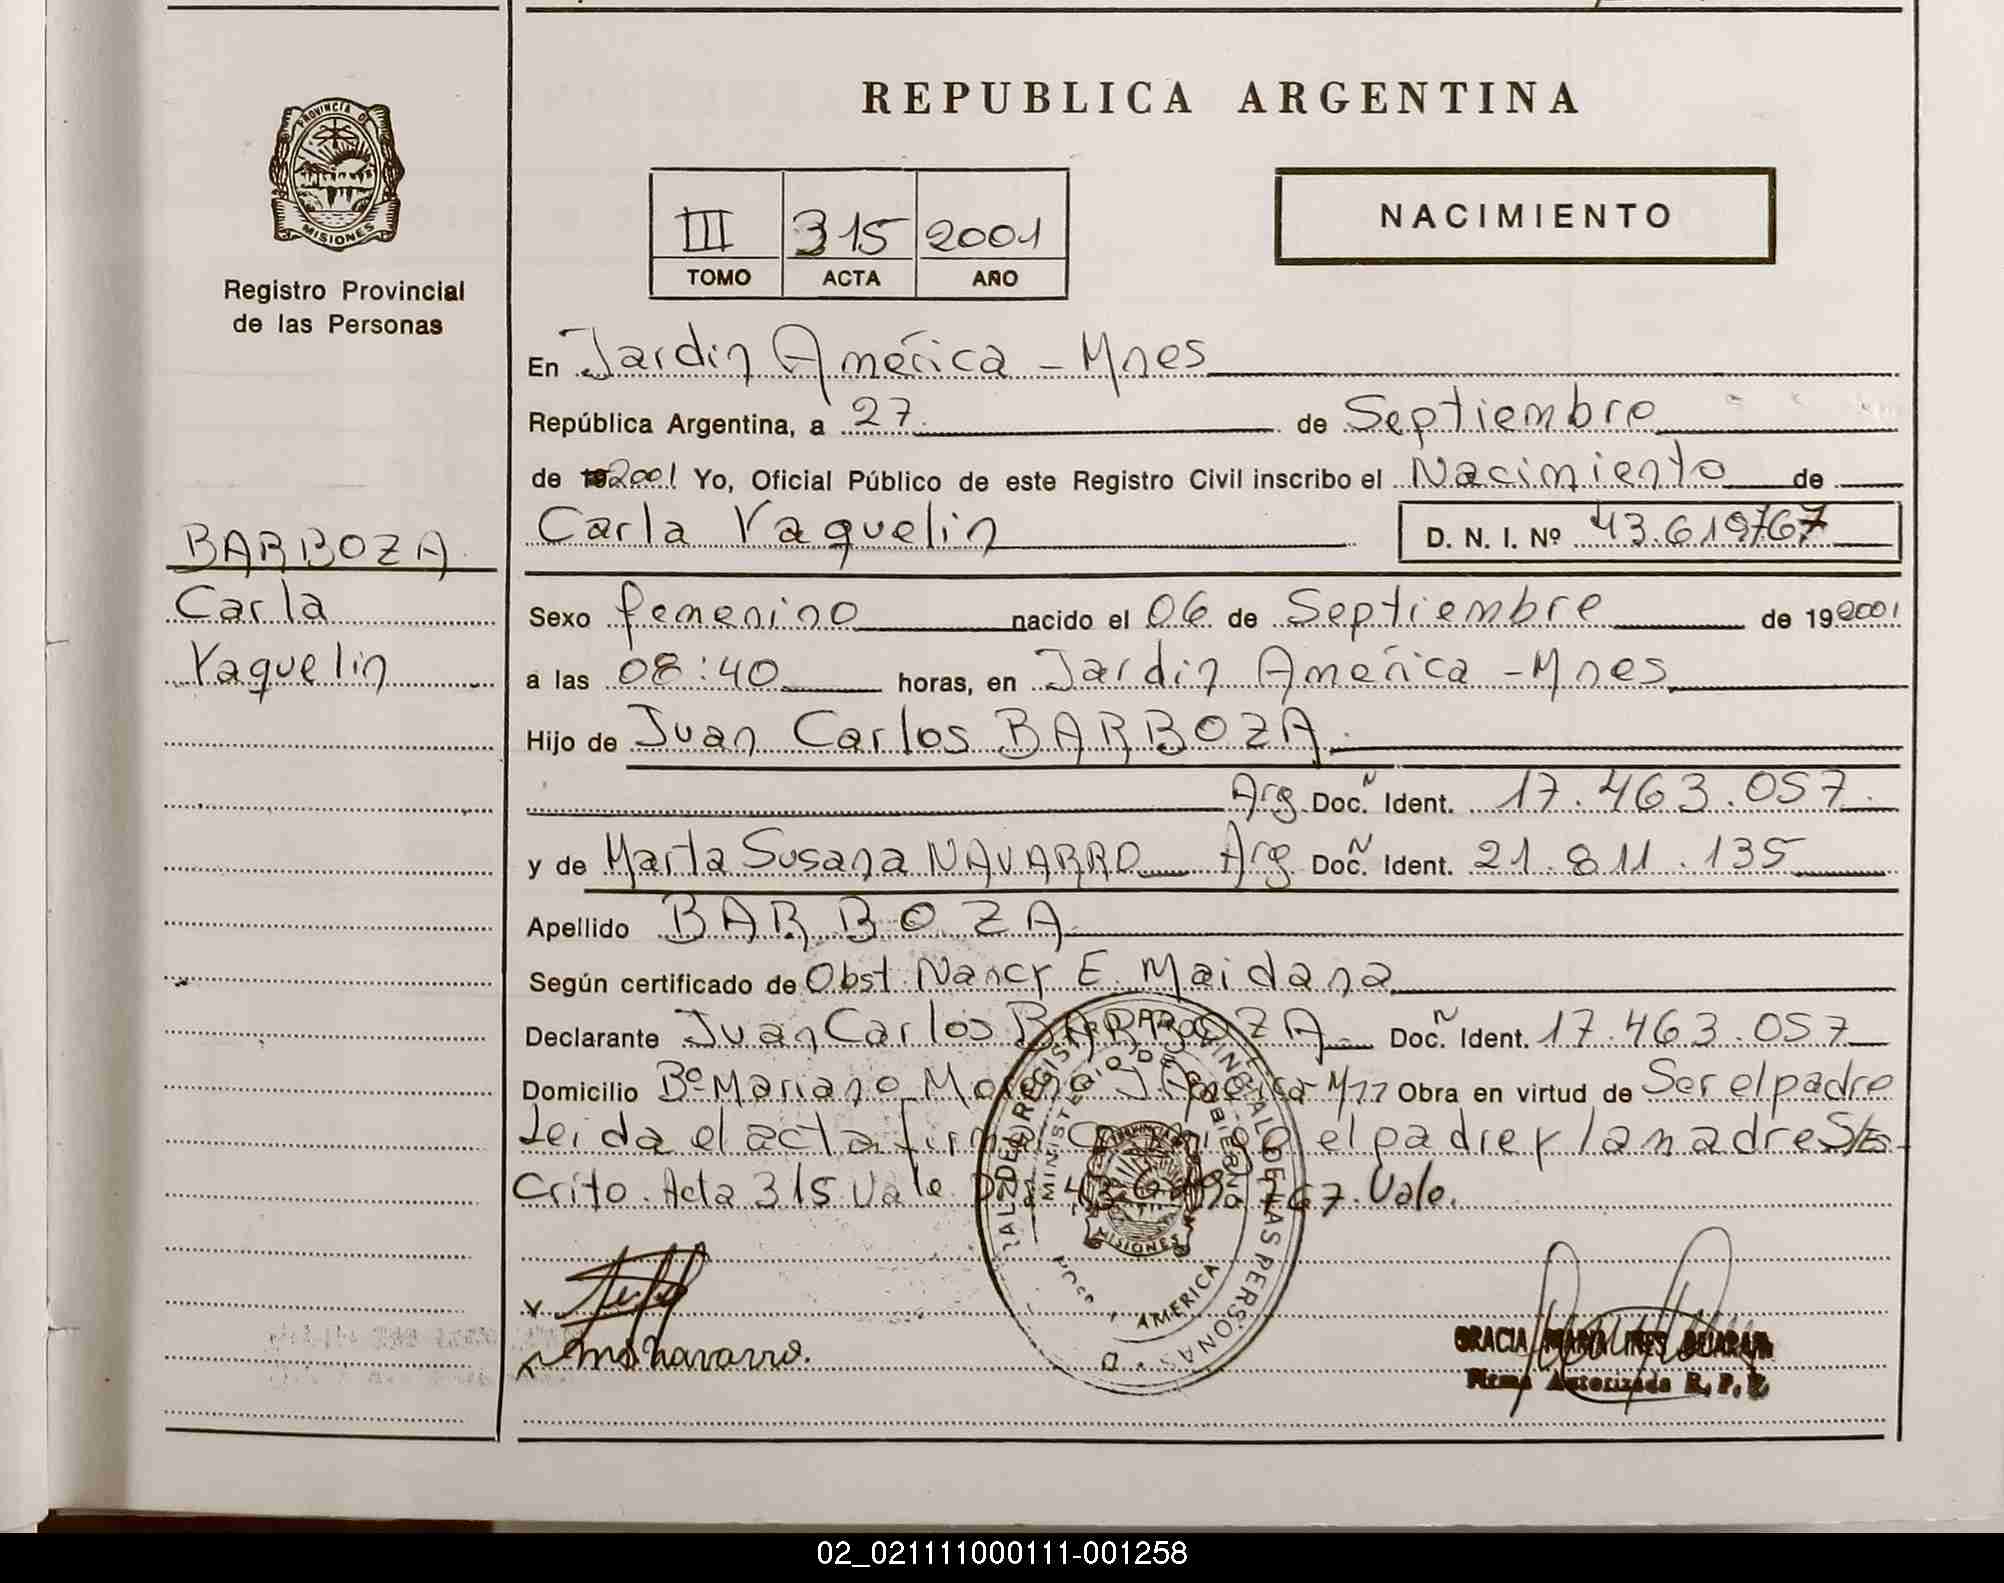 REPUBLICA ARGENTINA
PROVINCIA DE
MISIONES
Registro Provincial
de las Personas
III 315 2001
TOMO ACTA AÑO
NACIMIENTO
En Jardin América - Mnes
República Argentina, a 27 de Septiembre
de 19 2001 Yo, Oficial Público de este Registro Civil inscribo el Nacimiento de
Carla Yaquelin D. N. I. Nº 43.619767
BARBOZA
Carla
Yaquelin
Sexo femenino nacido el 06 de Septiembre de 19 2001
a las 08:40 horas, en Jardin América - Mnes
Hijo de Juan Carlos BARBOZA
Arg Doc. Ident. 17.463.057
y de Marta Susana NAVARRO Arg Doc. Ident. 21.811.135
Apellido BARBOZA
Según certificado de Obst. Nancy E. Maidana
Declarante Juan Carlos BARBOZA Doc. Ident. 17.463.057
Domicilio Bº Mariano Moreno J. América Mnes Obra en virtud de Ser el padre
Leida el acta firman conmigo el padre y la madre S/Es-
crito. Acta 315 Vale. 43.619.767. Vale.
REGISTRO PROVINCIAL DE LAS PERSONAS
MINISTERIO DE GOBIERNO
MISIONES
AMERICA
GRACIA MARIA INES
Firma Autorizada R. P. P.
02_021111000111-001258